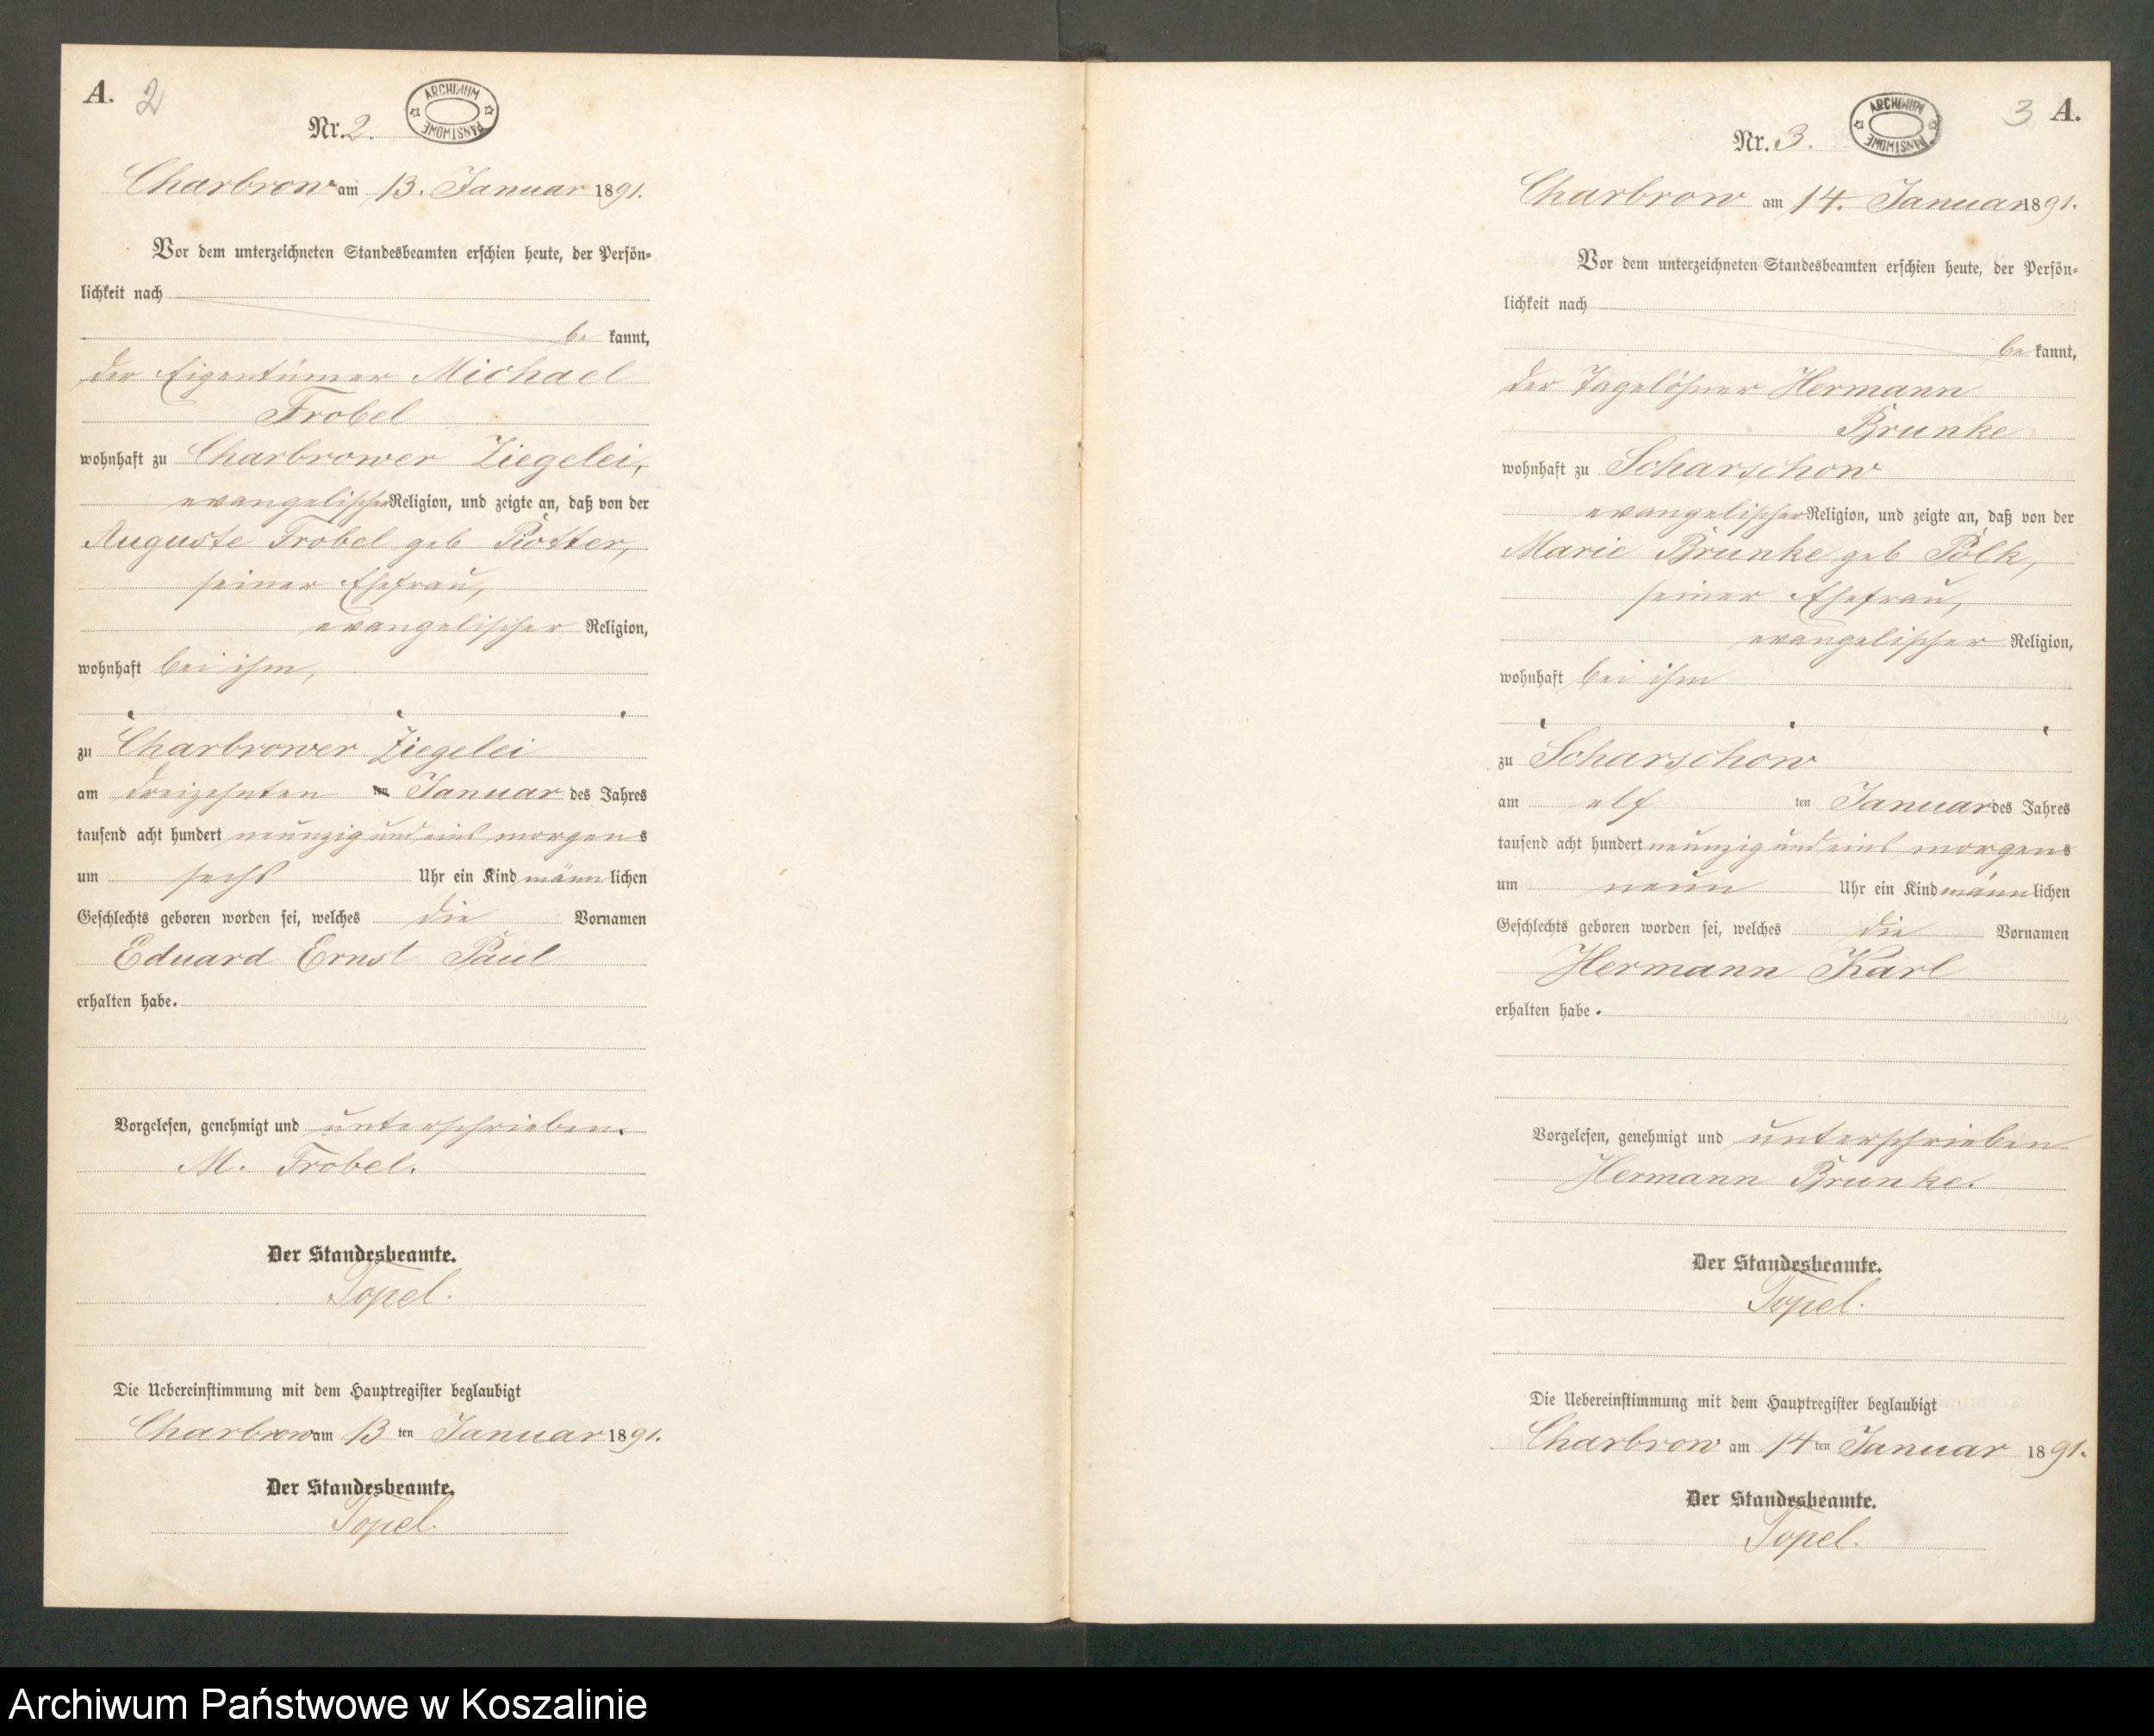 A. 2
ARCHIWUM PAŃSTWOWE
Nr. 2.
Charbrow am 13. Januar 1891.
Vor dem unterzeichneten Standesbeamten erschien heute, der Persön-
lichkeit nach
be kannt,
der Eigentümer Michael
Frobel
wohnhaft zu Charbrower Ziegelei,
evangelischer Religion, und zeigte an, daß von der
Auguste Frobel geb
seiner Ehefrau,
evangelischer Religion,
wohnhaft bei ihm,
zu Charbrower Ziegelei
am dreizehnten ten Januar des Jahres
tausend acht hundert neunzig und eins morgens
um sechs Uhr ein Kind männlichen
Geschlechts geboren worden sei, welches die Vornamen
Eduard Ernst Paul
erhalten habe.
Vorgelesen, genehmigt und unterschrieben.
M. Frobel.
Der Standesbeamte.
Topel.
Die Uebereinstimmung mit dem Hauptregister beglaubigt
Charbrow am 13 ten Januar 1891.
Der Standesbeamte.
Topel.
3 A.
ARCHIWUM PAŃSTWOWE
Nr. 3.
Charbrow am 14. Januar 1891.
Vor dem unterzeichneten Standesbeamten erschien heute, der Persön-
lichkeit nach
be kannt,
der Tagelöhner Hermann
Brunke
wohnhaft zu Scharschow
evangelischer Religion, und zeigte an, daß von der
Marie Brunke geb Polk,
seiner Ehefrau,
evangelischer Religion,
wohnhaft bei ihm
zu Scharschow
am elf ten Januar des Jahres
tausend acht hundert neunzig und eins morgens
um neun Uhr ein Kind männlichen
Geschlechts geboren worden sei, welches die Vornamen
Hermann Karl
erhalten habe.
Vorgelesen, genehmigt und unterschrieben
Hermann Brunke.
Der Standesbeamte.
Topel.
Die Uebereinstimmung mit dem Hauptregister beglaubigt
Charbrow am 14 ten Januar 1891.
Der Standesbeamte.
Topel.
Archiwum Państwowe w Koszalinie